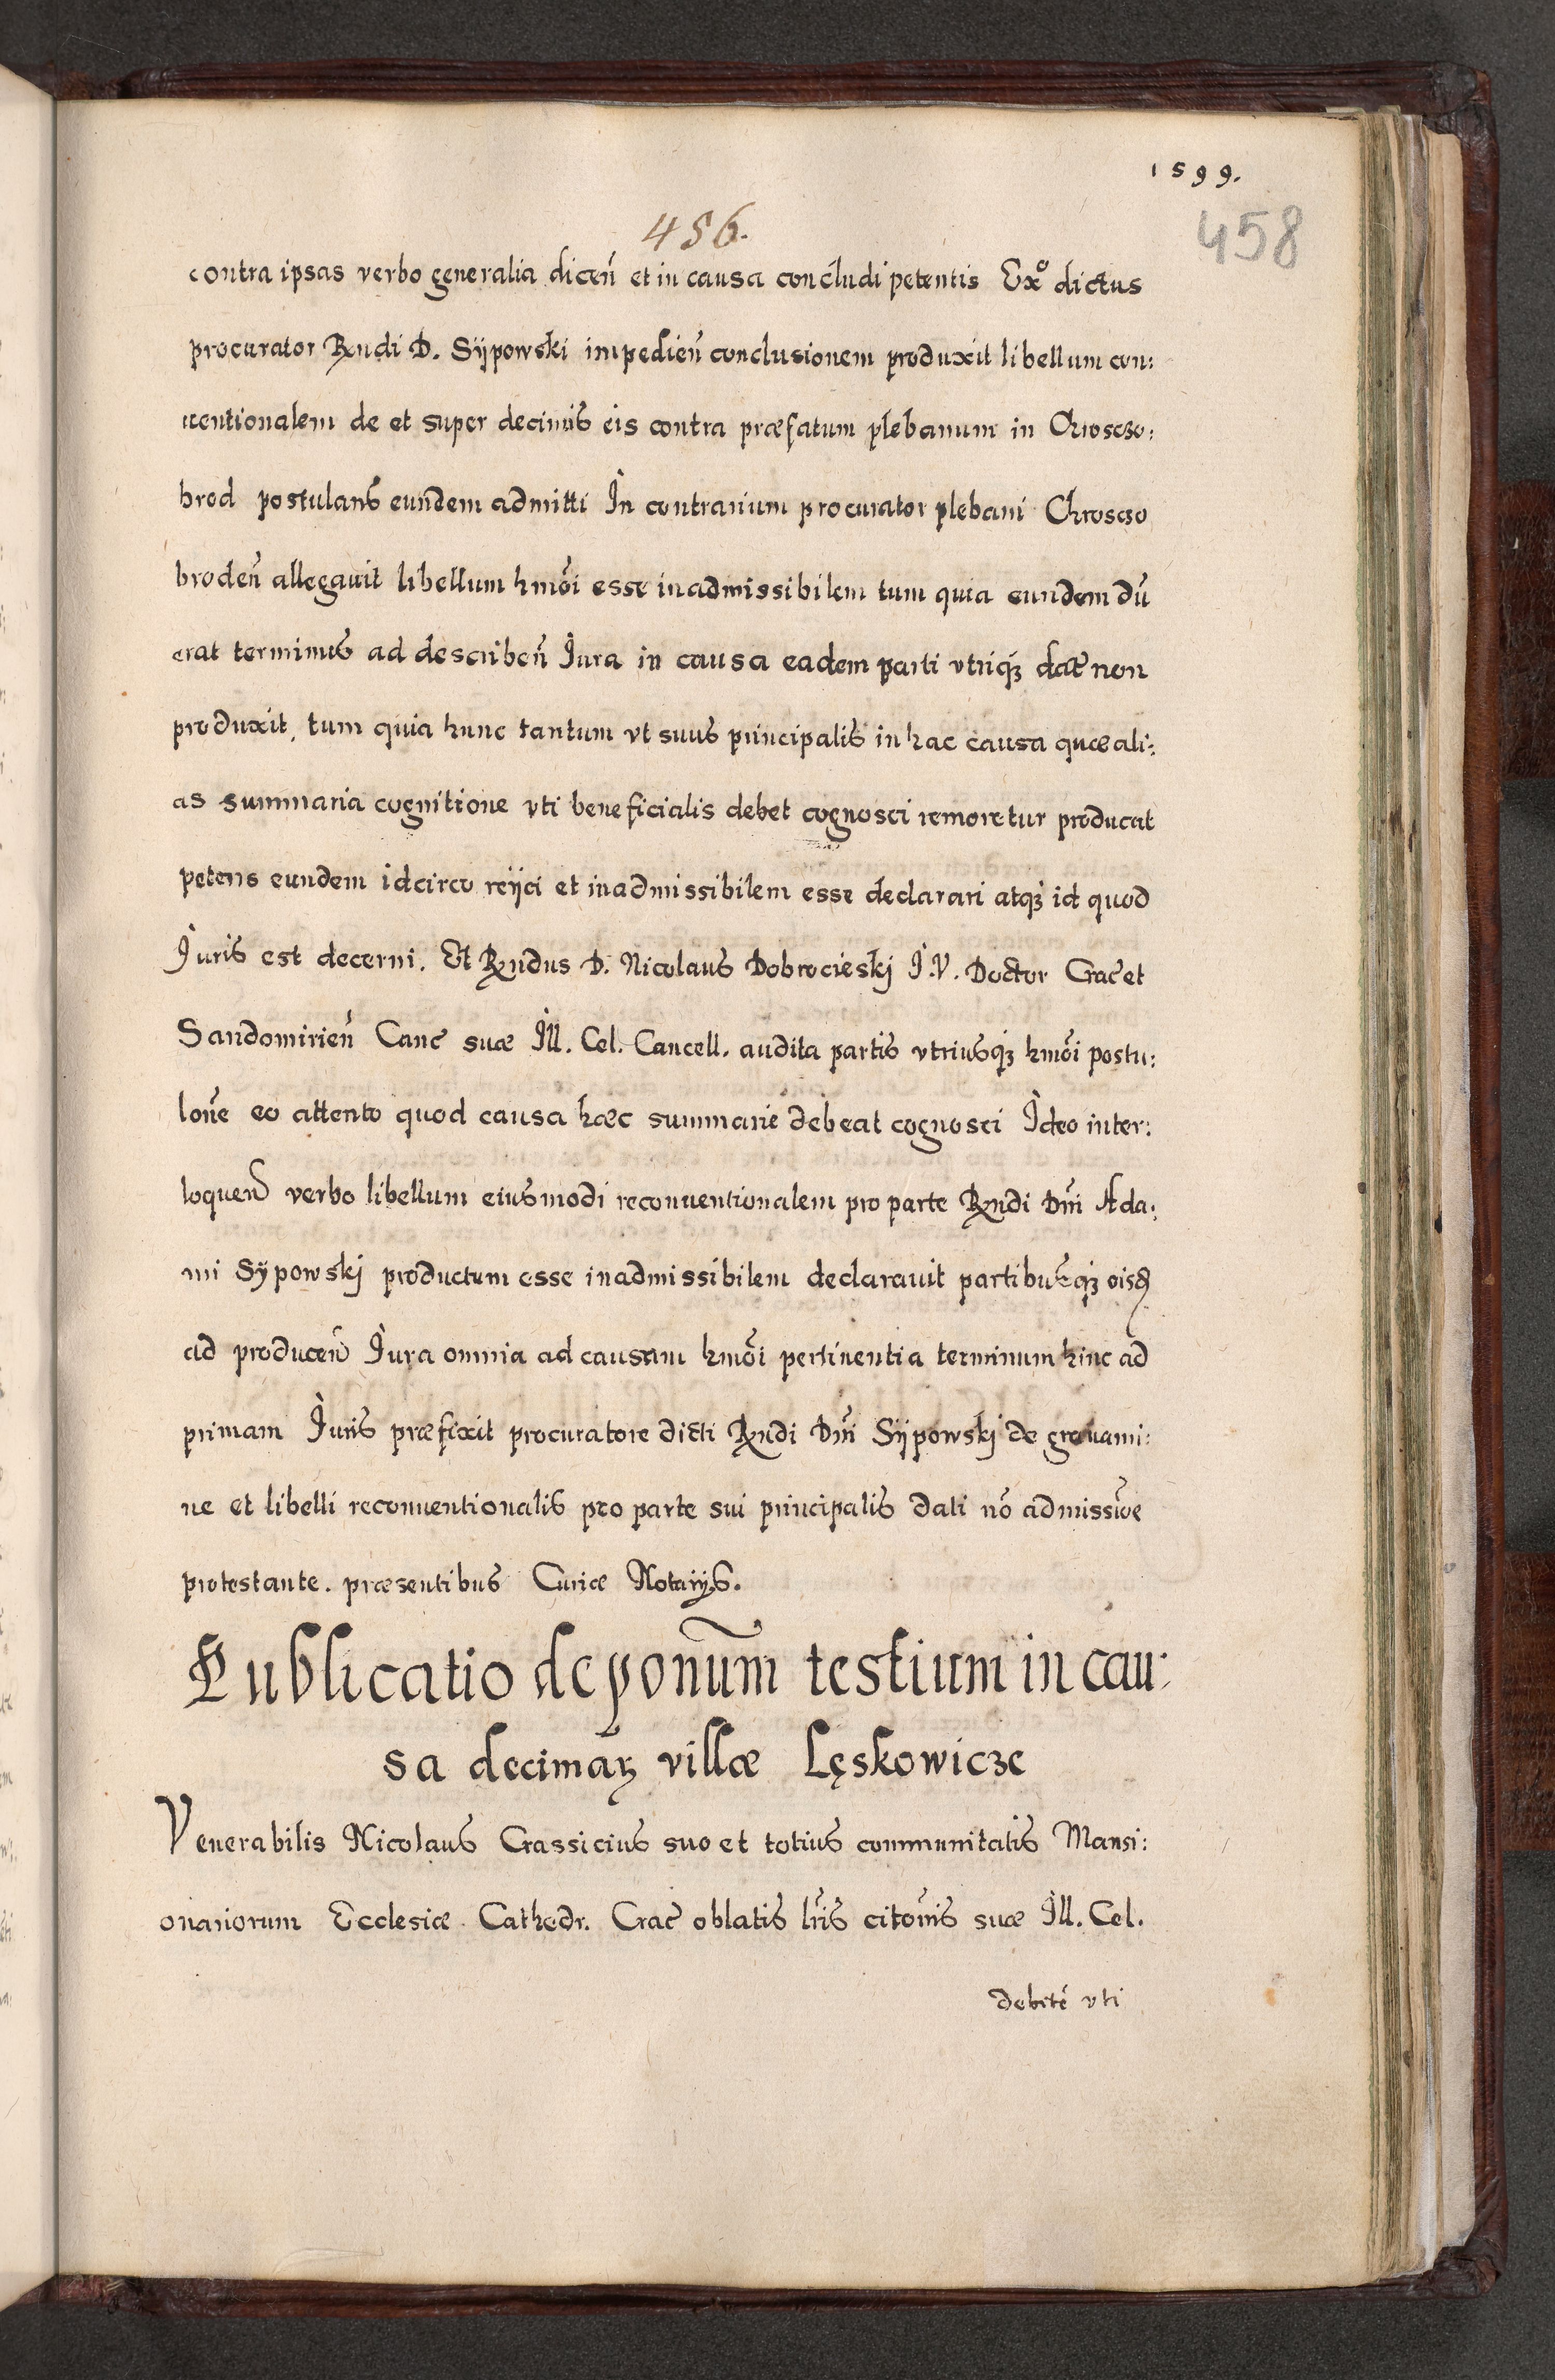 1599.
456.
458
contra ipsas verbo generalia diceñ et in causa concludi petentis Exº dictus
procurator Rndi D. Sÿpowski impedieñ conclusionem produxit libellum con:
uentionalem de et super decimis eis contra præfatum plebanum in Chroszo:
brod postulans eundem admitti In contrarium procurator plebani Chroszo
brodeñ allegauit libellum hmõi esse inadmissibilem tum quia eundem dũ
erat terminus ad describeñ Jura in causa eadem parti vtriqꝫ dat̃ non
produxit, tum quia hunc tantum vt suus principalis in hac causa quæ ali:
as summaria cognitione vti beneficialis debet cognosci remoretur producat
petens eundem idcirco reijci et inadmissibilem esse declarari atqꝫ id quod
Juris est decerni. Et Rndus D. Nicolaus Dobrocieskj J.V. Doctor Crac̃ et
Sandomirieñ Canc̃ suæ Ill. Cel. Cancell. audita partis vtriusqꝫ hmõi postu:
lone eo attento quod causa hæc summarie debeat cognosci Ideo inter:
loqueñ verbo libellum eiusmodi reconuentionalem pro parte Rndi Dñi Ada:
mi Sÿpowskj productum esse inadmissibilem declarauit partibusqꝫ
ad produceñ Jura omnia ad causam hmõi pertinentia terminum hinc ad
primam Juris præfixit procuratore dicti Rndi Dñi Sÿpowskj de grauami:
ne et libelli reconuentionalis pro parte sui principalis dati nõ admissiõe
protestante. præsentibus Curiæ Notarijs.
Publicatio deponũm testium in cau:
sa decimaꝝ villæ Lęskowicze
Venerabilis Nicolaus Crassicius suo et totius communitatis Mansi:
onariorum Ecclesiæ Cathedr. Crac̃ oblatis lr̃is citõnis suæ Ill. Cel.
debitè vti